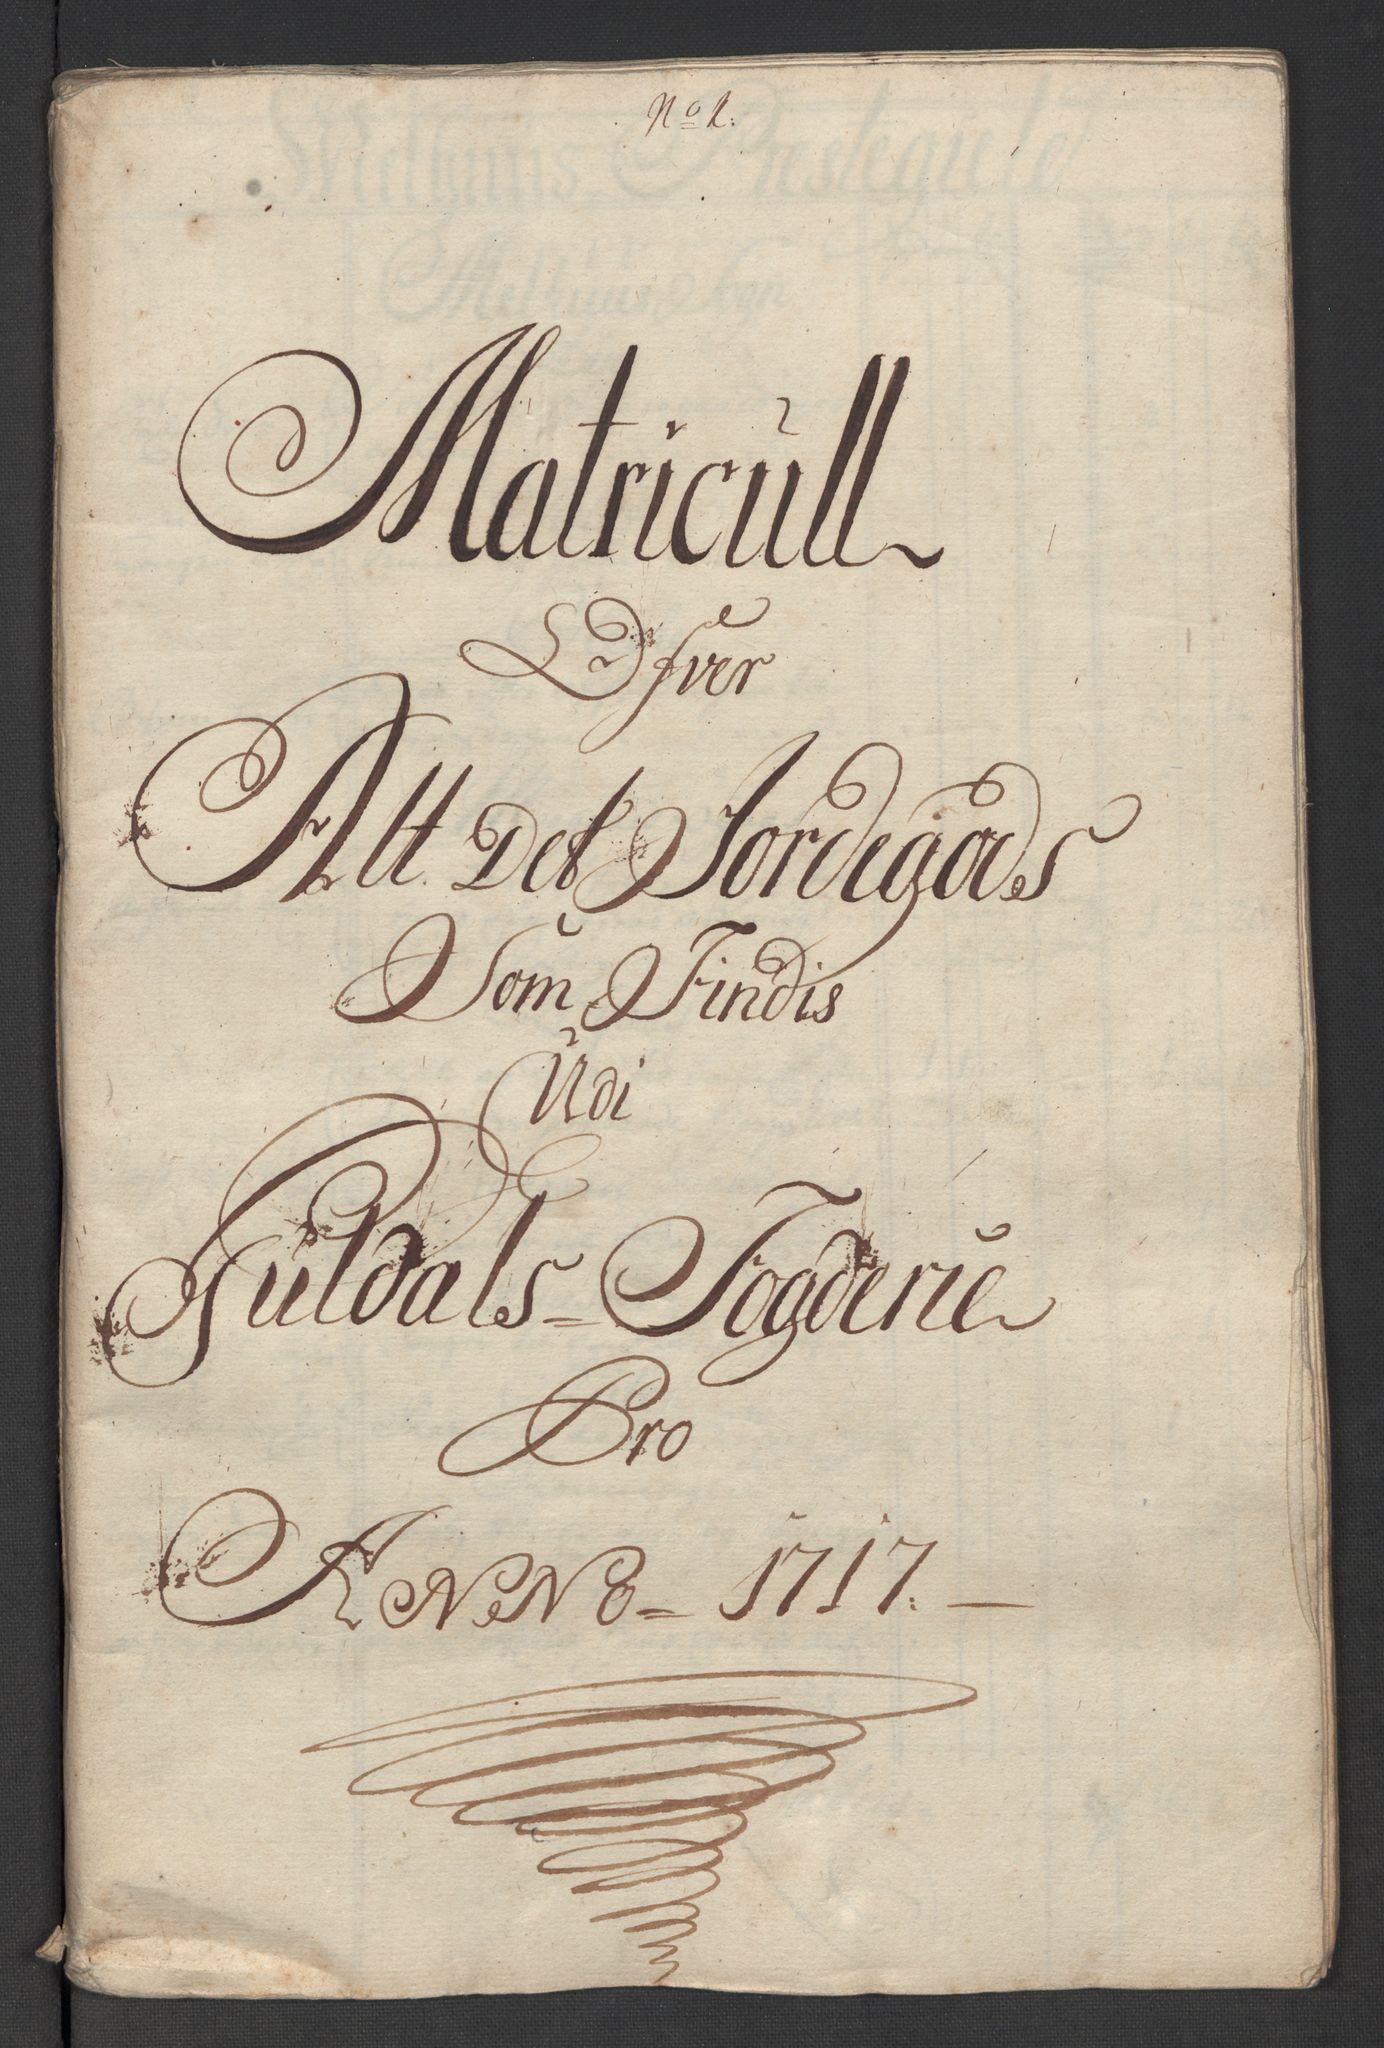 No 1.
Matricull
Ofver
Alt Det Jordegods
Som Findis
Udi
Guldals = Fogderie
Pro
ANNO = 1717. —